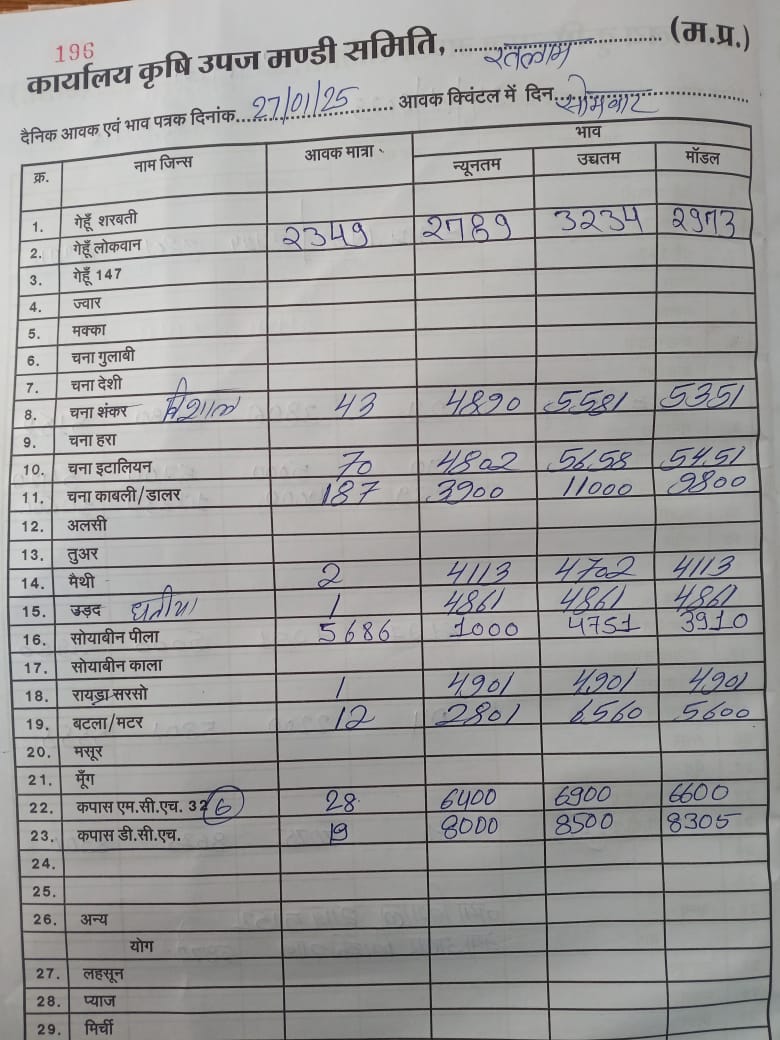 196
कार्यालय कृषि उपज मण्डी समिति, रतलाम (म.प्र.)
दैनिक आवक एवं भाव पत्रक दिनांक 27/01/25 आवक क्विंटल में दिन सोमवार
क्र. नाम जिन्स आवक मात्रा भाव
न्यूनतम उच्चतम मॉडल
1. गेहूँ शरबती
2. गेहूँ लोकवान 2349 2789 3234 2973
3. गेहूँ 147
4. ज्वार
5. मक्का
6. चना गुलाबी
7. चना देशी
8. चना शंकर विशाल 43 4890 5581 5351
9. चना हरा
10. चना इटालियन 70 4802 5658 5451
11. चना काबली/डालर 187 3900 11000 9800
12. अलसी
13. तुअर
14. मैथी 2 4113 4702 4113
15. उड़द धनीया 1 4861 4861 4861
16. सोयाबीन पीला 5686 1000 4751 3910
17. सोयाबीन काला
18. रायड़ा सरसो 1 4901 4901 4901
19. बटला/मटर 12 2801 6560 5600
20. मसूर
21. मूँग
22. कपास एम.सी.एच. 32 6 28 6400 6900 6600
23. कपास डी.सी.एच. 19 8000 8500 8305
24.
25.
26. अन्य
योग
27. लहसून
28. प्याज
29. मिर्ची